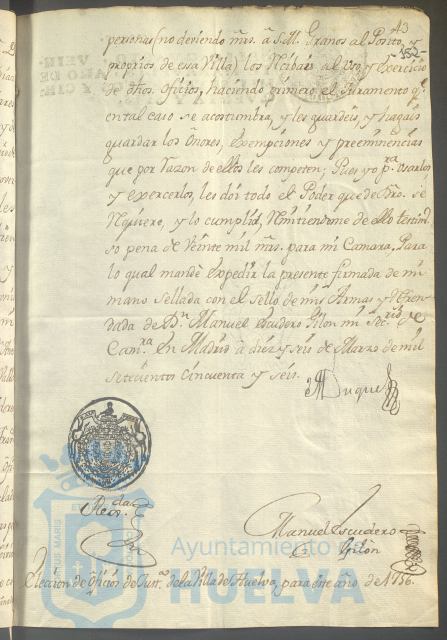 43
personas (no deviendo mrs. â S.M. Granos al Posito, y
152
proprios de esa Villa) los Recibáis al uso y Exercicio
de dhos. Oficios, haciendo primero el Juramento qe.
ental caso se acostumbra, y les guardeis, y hagais
guardar los ônores, exempciones y preeminencias
que por razon de ellos les competen; Pues yo pra. usarlos
y exercerlos, les doi todo el Poder que de Dro. se
Requiere, y lo cumplid, Remitiendome de ello testimo.
so pena de Veinte mil mrs. para mi Camara, Para
lo qual mandè expedir la presente firmada de mi
mano Sellada con el Sello de mis Armas y Refren-
dada de Dn. Manuel Escudero Gilon mi Secrio. de
Camra. En Madrid â diez y seis de Marzo de mil
Setecientos Cincuenta y Seis.
el Duque
Regda.
Manuel Escudero
Gilón
Ayuntamiento de
HUELVA
Eleccion de Oficios de Justa. de la Villa de Huelva, para este año de 1756.